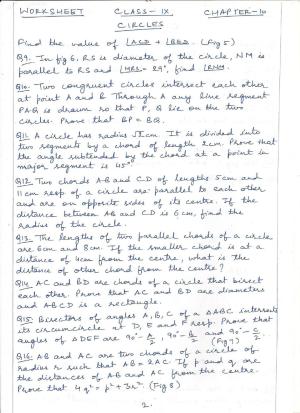 WORKSHEET CLASS-IX CHAPTER-10
CIRCLES
Find the value of ∠ACD + ∠BED. (Fig 5)
Q9. In fig 6, RS is diameter of the circle, NM is
parallel to RS and ∠MRS = 29°, find ∠RNM.
Q10. Two congruent circles intersect each other
at point A and B. Through A any line segment
PAQ is drawn so that P, Q lie on the two
circles. Prove that BP = BQ.
Q11. A circle has radius √2 cm. It is divided into
two segments by a chord of length 2cm. Prove that
the angle subtended by the chord at a point in
major segment is 45°
Q12. Two chords AB and CD of lengths 5cm and
11cm resp. of a circle are parallel to each other
and are on opposite sides of its centre. If the
distance between AB and CD is 6cm, find the
radius of the circle.
Q13. The lengths of two parallel chords of a circle
are 6cm and 8cm. If the smaller chord is at a
distance of 4cm from the centre, what is the
distance of other chord from the centre?
Q14. AC and BD are chords of a circle that bisect
each other. Prove that AC and BD are diameters
and ABCD is a rectangle.
Q15. Bisectors of angles A, B, C of a △ABC intersect
its circumcircle at D, E and F resp. Prove that
angles of △DEF are 90°-A/2, 90°-B/2 and 90°-C/2
(Fig 7)
Q16. AB and AC are two chords of a circle of
radius r such that AB = 2AC. If p and q are
the distances of AB and AC from the centre.
Prove that 4q² = p² + 3r² (Fig 8)
2.